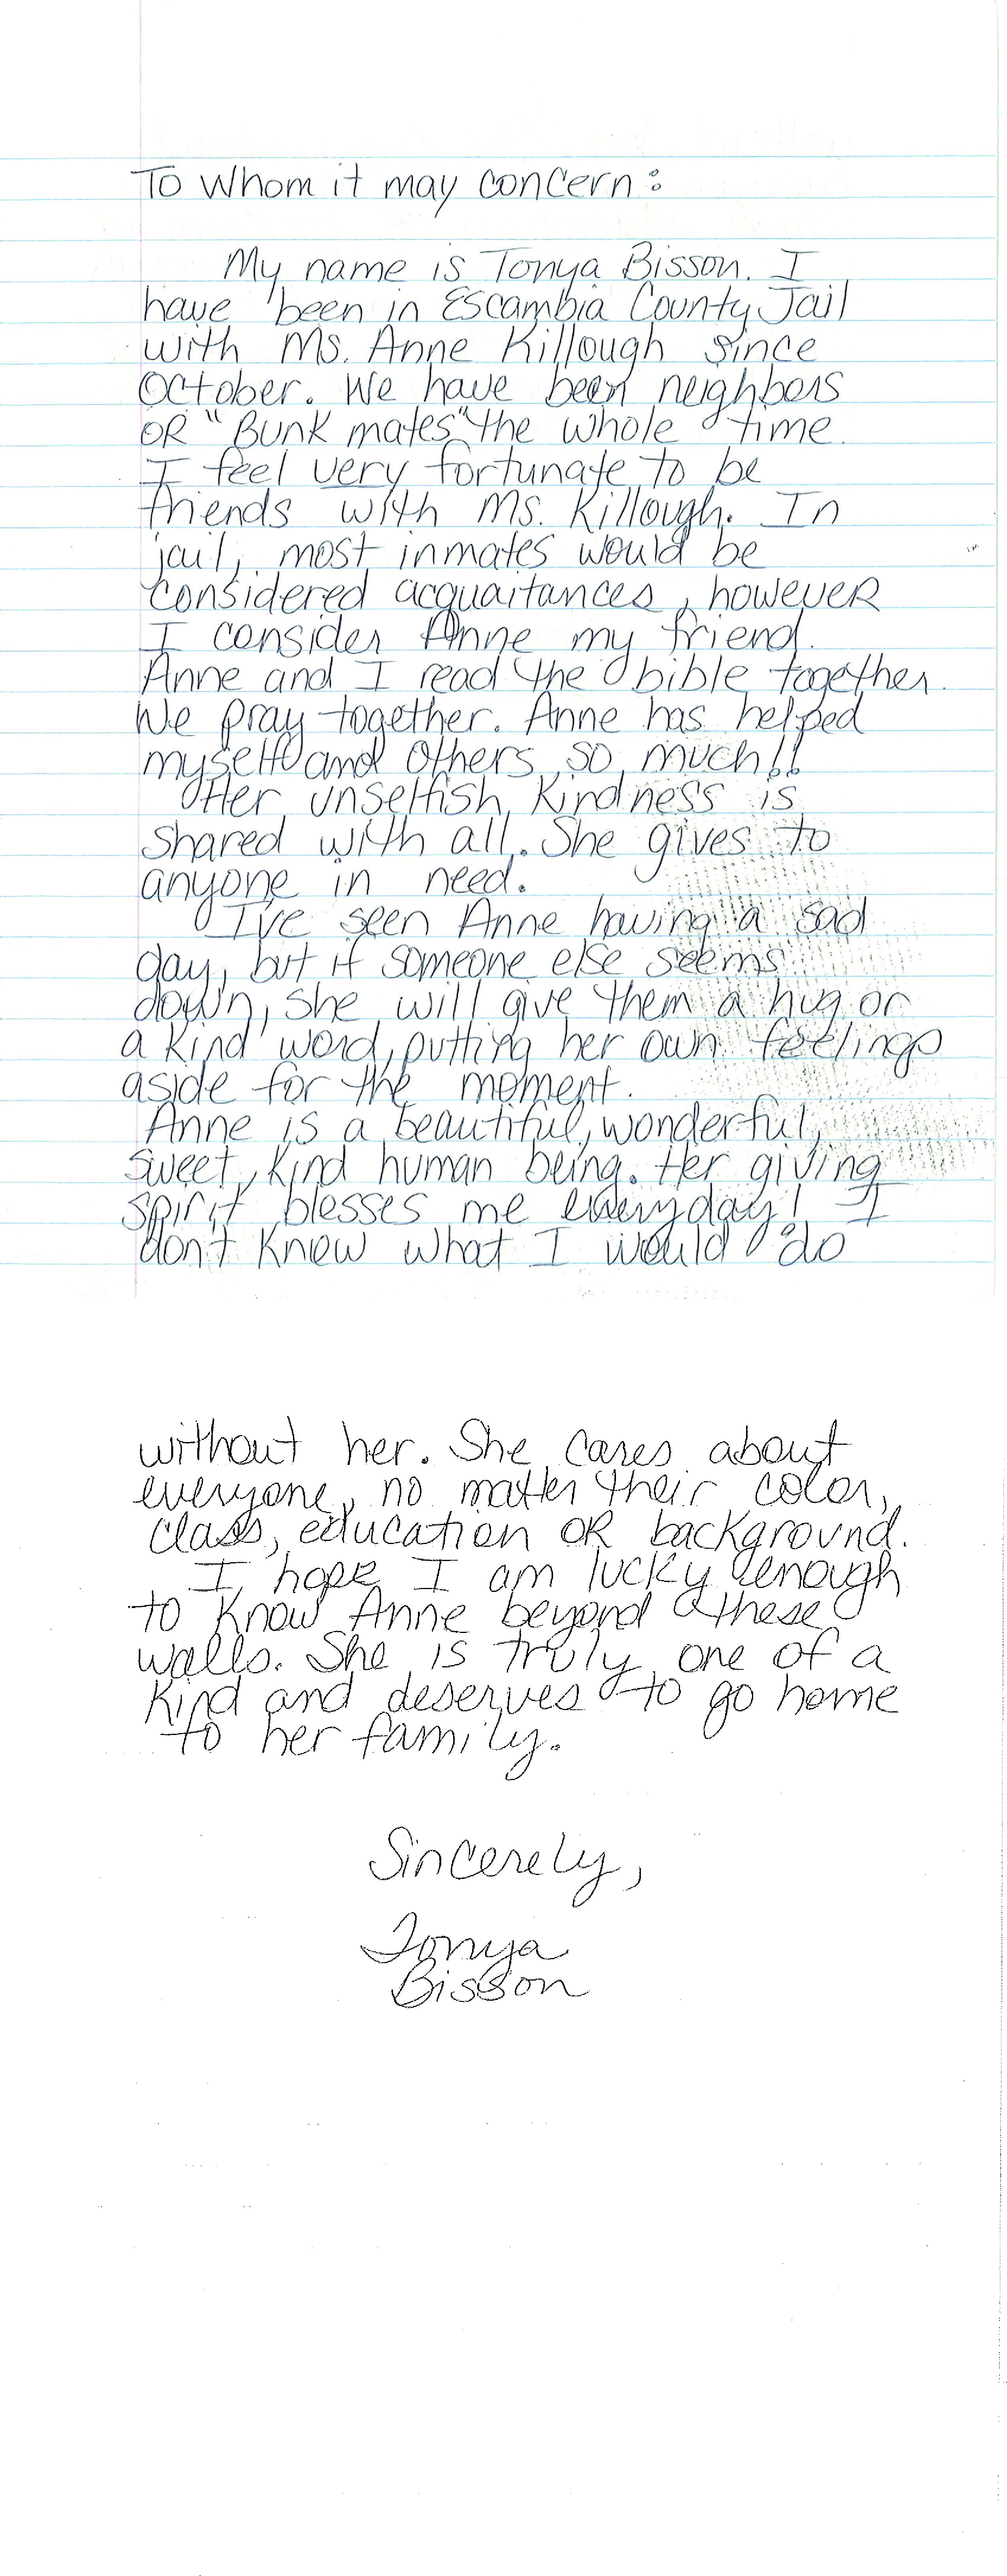 To Whom it may concern:
My name is Tonya Bisson. I
have been in Escambia County Jail
with Ms. Anne Killough since
October. We have been neighbors
OR "Bunk mates" the whole time.
I feel very fortunate to be
friends with Ms. Killough. In
jail, most inmates would be
considered acquaitances, however
I consider Anne my friend.
Anne and I read the bible together.
We pray together. Anne has helped
myself and others so much!!
Her unselfish kindness is
shared with all. She gives to
anyone in need.
I've seen Anne having a sad
day, but if someone else seems
down, she will give them a hug or
a kind word, putting her own feelings
aside for the moment.
Anne is a beautiful, wonderful,
sweet, kind human being. Her giving
spirit blesses me everyday! I
don't know what I would do
without her. She cares about
everyone, no matter their color,
class, education OR background.
I hope I am lucky enough
to know Anne beyond these
walls. She is truly one of a
kind and deserves to go home
to her family.
Sincerely,
Tonya
Bisson